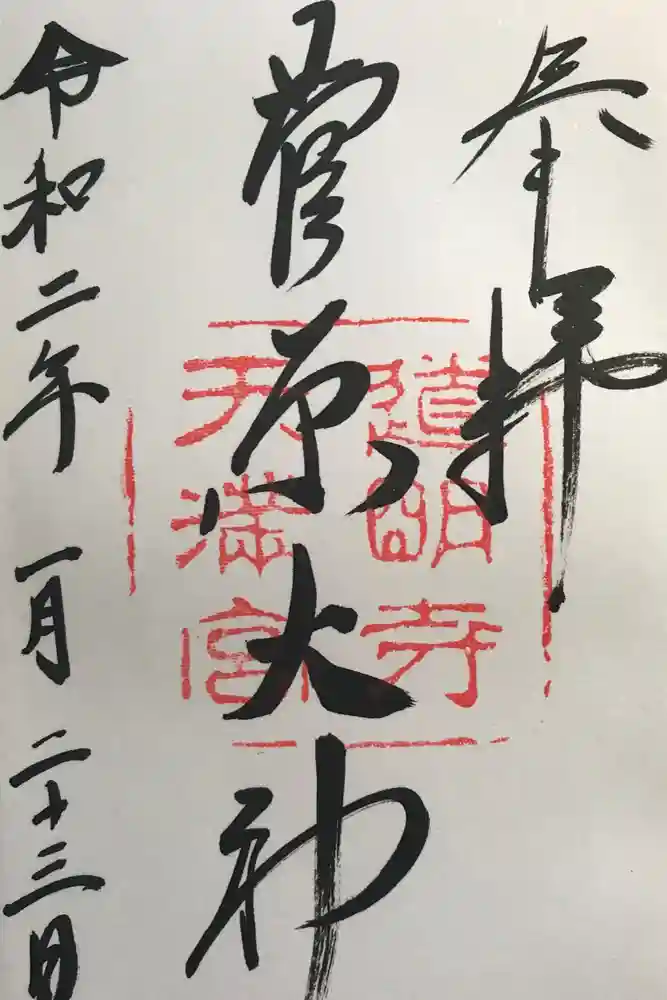 奉拝
菅原大神
道明寺
天満宮
令和二年 一月 二十三日